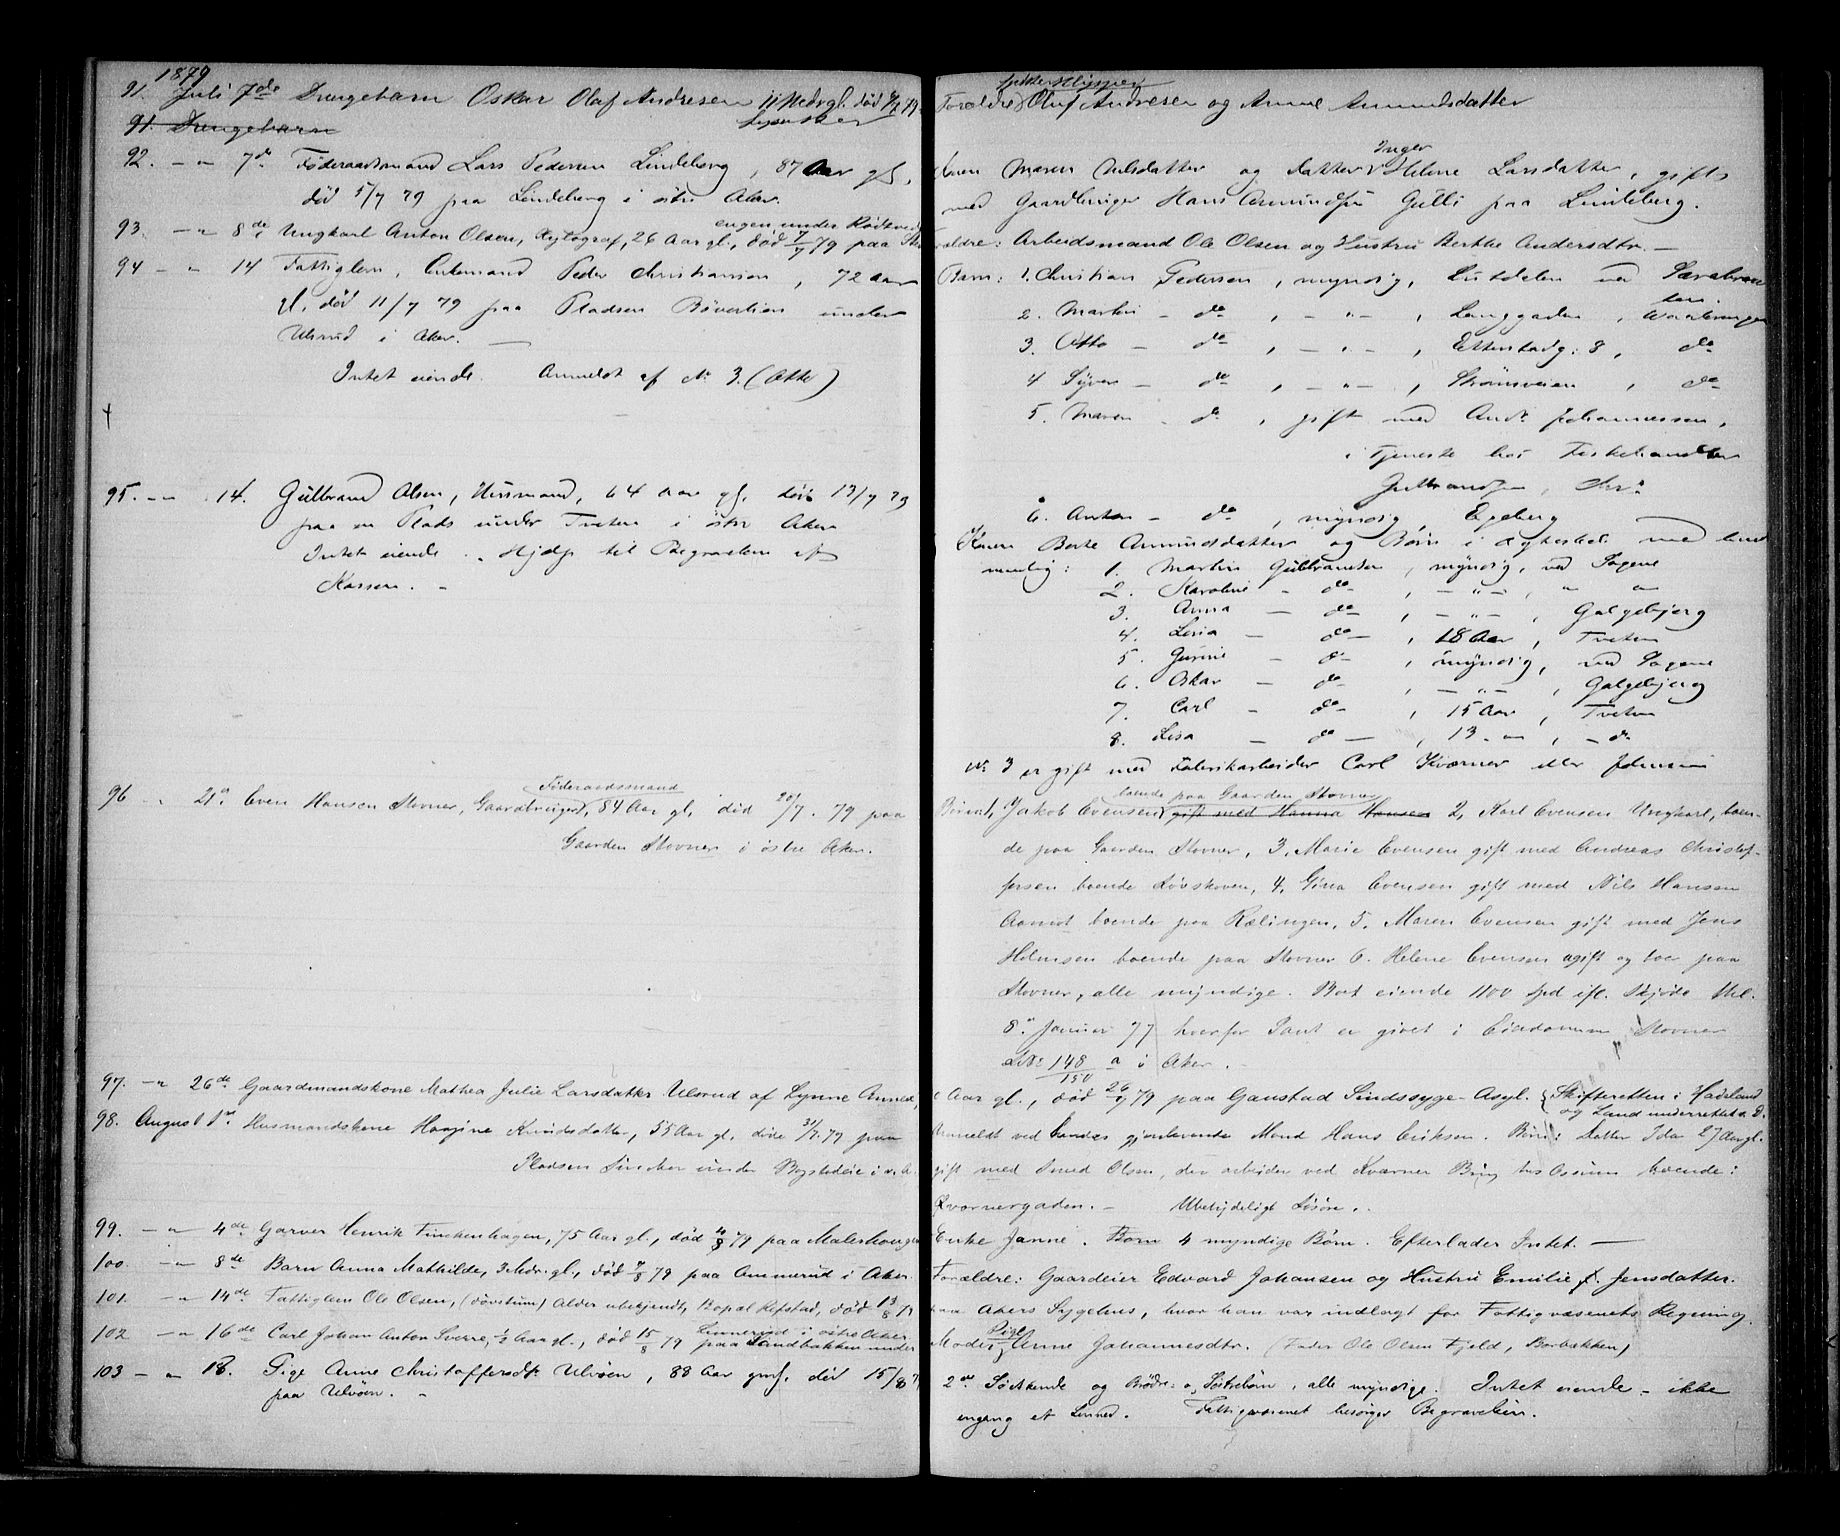 1879
91. Juli 7de Drengebarn Oskar Olaf Andresen 11 Mdr gl. død 79
91. Drengebarn
92. – " 7de Føderaadsmand Lars Pedersen Lindeberg, 87 Aar gl,
død 5/7 79 paa Lindeberg i østre Aker.
engen under Rødtvedt
93. – " 8de Ungkarl Anton Olsen, 26 Aar gl., død 7/7 79 paa
94 – " 14 Fattiglem, Enkemand Peder Christiansen, 72 Aar
gl. død 11/7 79 paa Pladsen under
Ulsrud i Aker. –
Intet eiende. Anmeldt af No 3. (Otto)
95. – " 14. Gulbrand Olsen, Husmand, 64 Aar gl. død 13/7 79
paa en Plads under Tveten i østre Aker
Intet eiende. Hjælp til Begravelsen af
Kassen. –
Føderaadsmand
96 " 21de Even Hansen Stovner, Gaardbruger, 84 Aar gl, død 20/7. 79 paa
Gaarden Stovner i østre Aker.
97. – " 26de Gaardmandskone Mathea Julie Larsdatter Ulsrud af Annex,
98. August 1ste Husmandskone Knudsdatter, 55 Aar gl. død 31/7. 79 paa
Pladsen under Bogstad
99. – " 4de Garver Henrik Finckenhagen, 75 Aar gl., død 4/8 79 paa Malerhaugen
100. – " 8de Barn Anna Mathilde, 3 Mdr. gl., død 7/8 79 paa Ammerud i Aker.
101. – " 14de Fattiglem Ole Olsen, (døvstum) Alder ubekjendt, Bopæl Refstad, død 13/8
Linnerud i østre Aker
102 – " 16de Carl Johan Anton Sverre, ½ Aar gl., død 15/8 79 paa Sandbakken under
103 – " 18. Pige Anne Christoffersdtr Ulvøen, 88 Aar gml. død 15/8
paa Ulvøen. –
Forældre Oluf Andresen og Anne Amundsdatter
Inger
Maren Nilsdatter og Datter Helene Larsdatter, gift
med Gaardbruger Hans Amundsen Gulli paa Lindeberg.
Arbeidsmand Ole Olsen og Hustru Berthe Andersdtr. –
Børn: 1. Christian Pedersen, myndig,
2. Martin – do, – " –, Langgaden, Vaalerengen
3. Otto – do, – " –, 8, do
4 Syver – do, – " –, Strømsveien, do
5. Maren – do, gift med Andr. Johannessen,
i Tjeneste hos Fiskehandler
Gulbrandsen, Chra
6. Anton – do, myndig, Egeberg
Konen Berte Amundsdatter og Børn i Ægteskab med hende
nemlig: 1. Martin Gulbrandsen, myndig, ved Sagene
2. Karoline – do, – " –, " "
3. Anna – do, – " –, Galgebjerg
4. – do –, 18 Aar, Tveten
5. – do –, myndig, ved Sagene
6. Oskar – do, – " –, Galgebjerg
7. Carl – do –, 15 Aar, Tveten
8. Lisa – do –, 13 – " –, – do
No 3 er gift med Fabrikarbeider Carl Kværner eller Johnsen
boende paa Gaarden Stovner
Børn: 1, Jakob Evensen gift med Hanna Hansen 2, Karl Evensen Ungkarl, boen-
de paa Gaarden Stovner, 3, Marie Evensen gift med Andreas Christof-
fersen boende Løvskoven, 4, Gina Evensen gift med Nils Hansen
boende paa Rælingen, 5, Maren Evensen gift med Jens
Hilmsen boende paa Stovner 6. Helene Evensen ugift og boe paa
Stovner, alle myndige. Boet eiende 1100 Spd ifl. Skjøde thl.
8de Januar 77 hvorfor Pant er givet i Eiendommen Stovner
LNo 148/150 a i Aker.
Aar gl., død 26/7 79 paa Gaustad Sindssyge-Asyl. { Skifteretten i Hadeland
og Land underrettet s. D.
Anmeldt ved hendes gjenlevende Mand Hans Eriksen. Børn: Datter Ida 27 Aar gl.
gift med Smed Olsen, der arbeider ved Kværner Brug boende:
Kværnergaden. – Ubetydeligt Løsøre.
Enke Janne. 4 myndige Børn. Efterlader Intet. –
Forældre: Gaardeier Edvard Johansen og Hustru Emilie f. Jensdatter.
paa Akers Sygehus, hvor han var indlagt for Fattigvæsenets Regning.
Pige
Moder Anne Johannesdtr. (Fader Ole Olsen Fjeld, Borbækken)
2de Sødskende og Brødre- og Søstrebørn, alle myndige. Intet eiende – ikke
engang et Linned. Fattigvæsenet besørger Begravelsen.